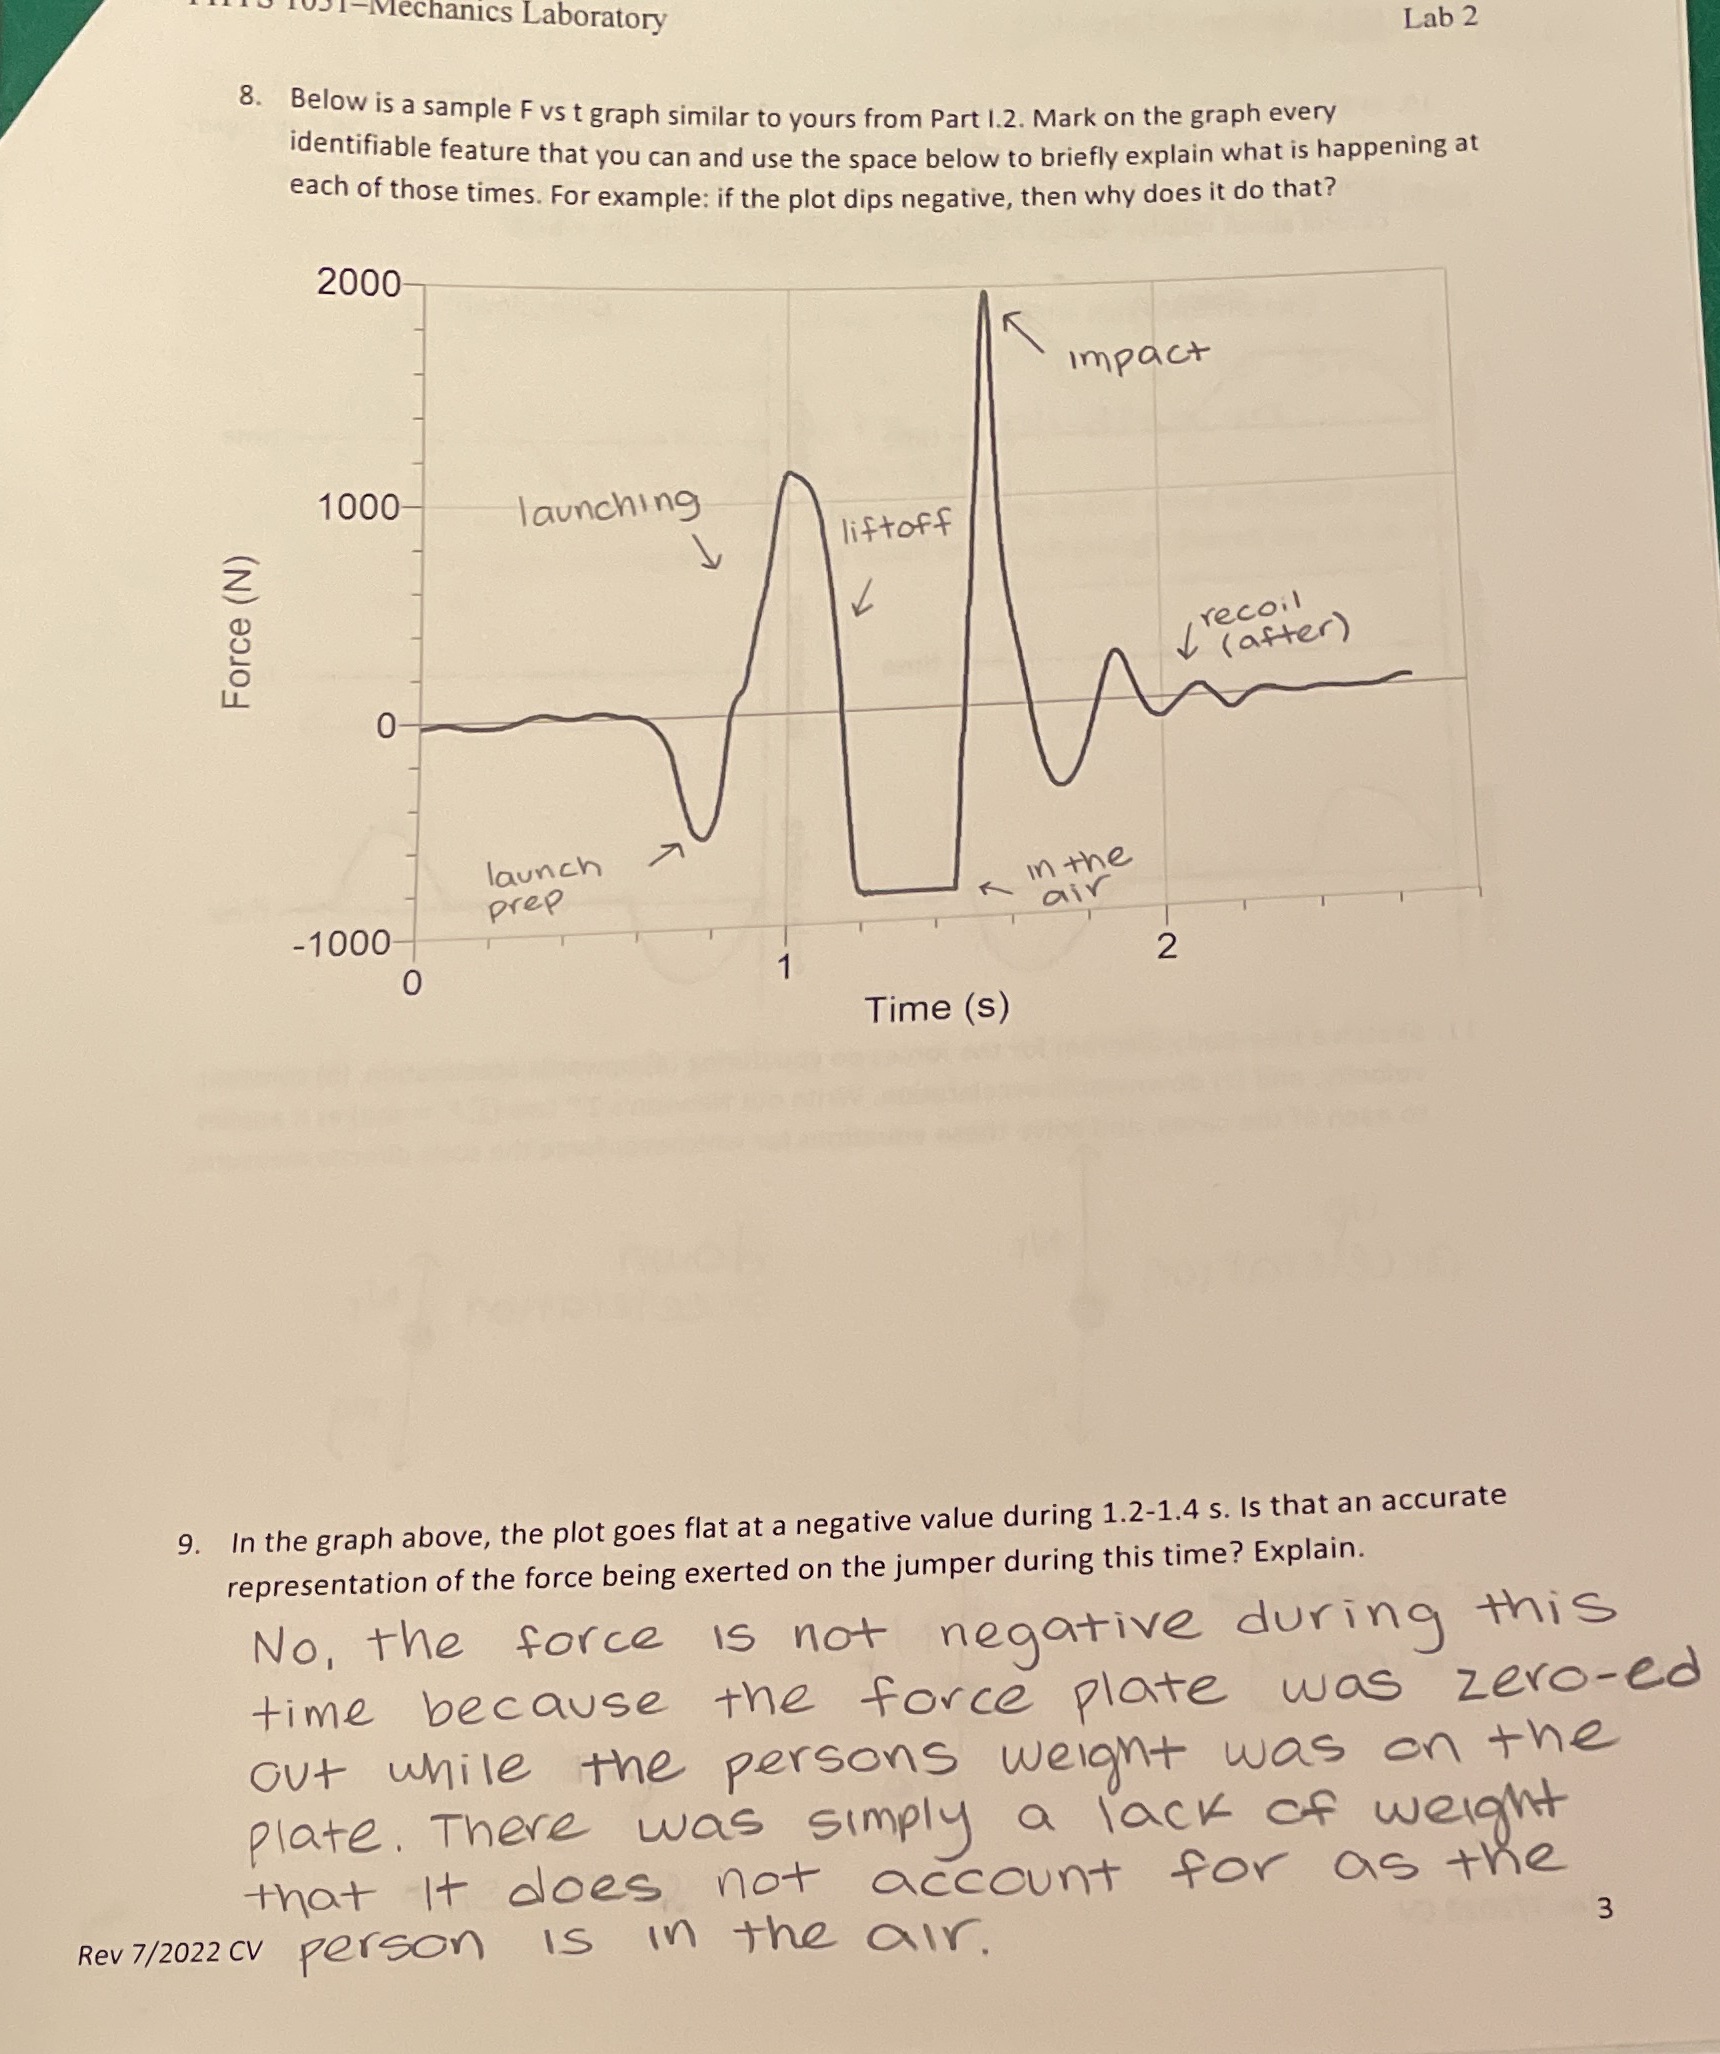 1051–Mechanics Laboratory
Lab 2
8. Below is a sample F vs t graph similar to yours from Part I.2. Mark on the graph every
identifiable feature that you can and use the space below to briefly explain what is happening at
each of those times. For example: if the plot dips negative, then why does it do that?
2000
impact
1000
launching
liftoff
Force (N)
recoil
(after)
0
launch
prep
in the
air
-1000
0
1
2
Time (s)
9. In the graph above, the plot goes flat at a negative value during 1.2-1.4 s. Is that an accurate
representation of the force being exerted on the jumper during this time? Explain.
No, the force is not negative during this
time because the force plate was zero-ed
out while the persons weight was on the
plate. There was simply a lack of weight
that it does not account for as the
person is in the air.
3
Rev 7/2022 CV